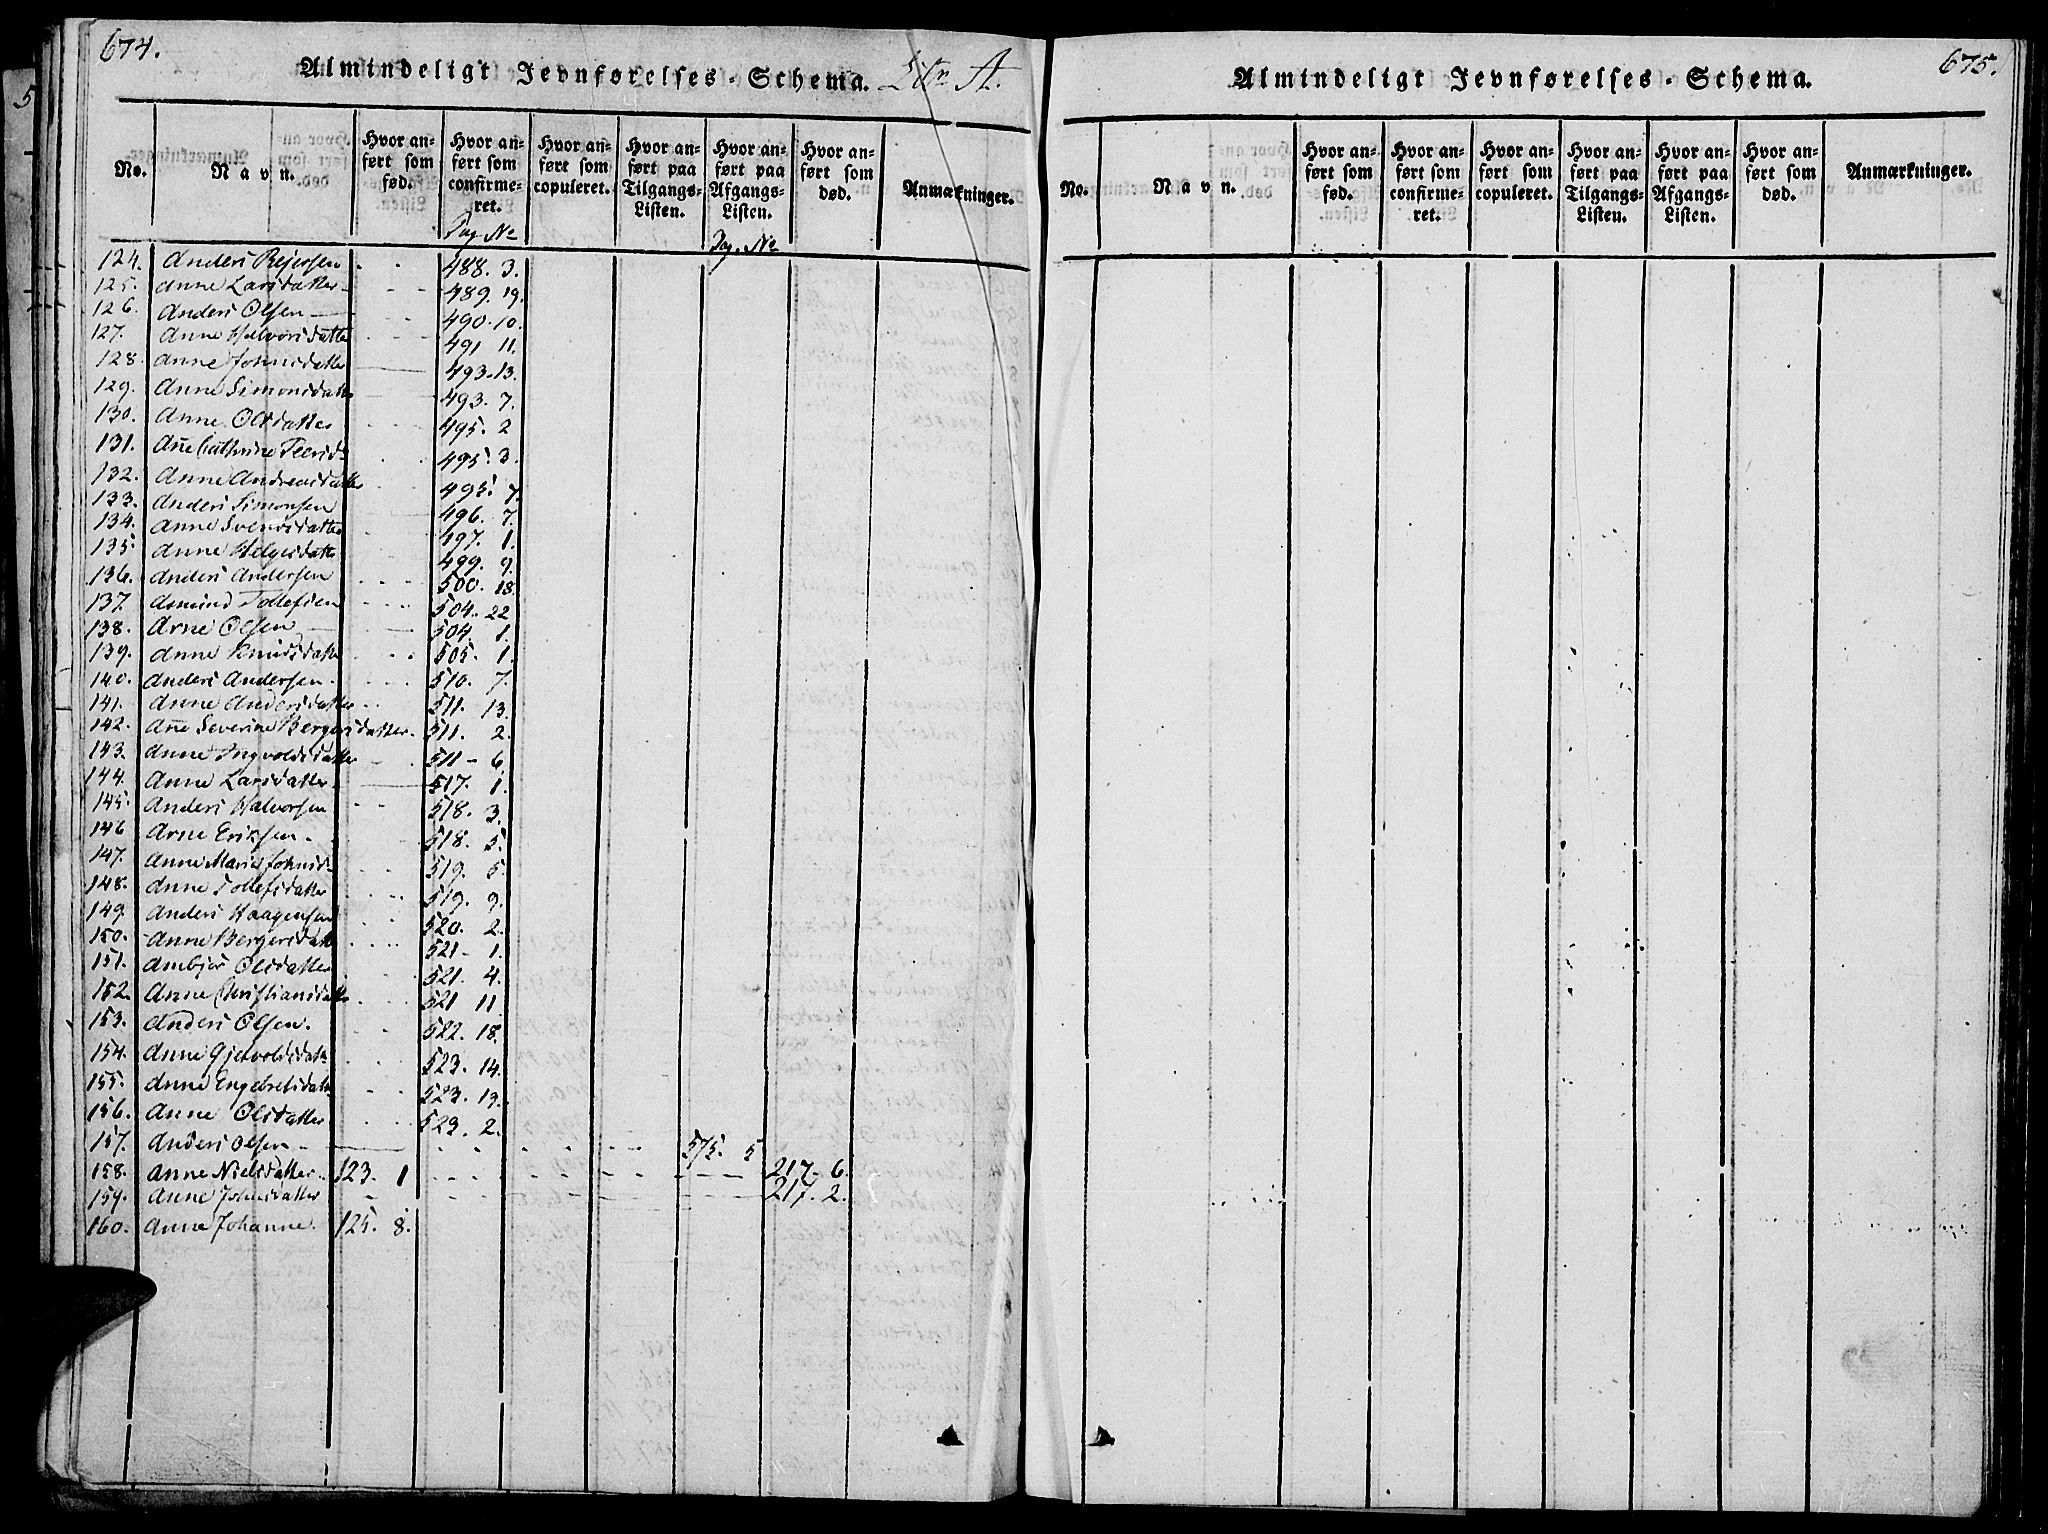 674.
Almindeligt Jevnførelses-Schema. Litr A.
No. Navn. Hvor anført som fød. Hvor anført som confirmeret. Hvor anført som copuleret. Hvor anført paa Tilgangs-Listen. Hvor anført paa Afgangs-Listen. Hvor anført som død. Anmærkninger.
Pag No Pag. No
124. Anders Rejersen 488. 3.
125. Anne Larsdatter 489. 19.
126. Anders Olsen 490. 10.
127. Anne Halvorsdatter 491 11.
128. Anne Johnsdatter 493. 13.
129. Anne Simonsdatter 493. 7.
130. Anne Olsdatter 495. 2
131. Añe Cathrine 495. 3.
132. Anne Andreasdatter 495. 7.
133. Anders Simonsen 496. 7.
134. Anne Svendsdatter 497. 1.
135. Anne Helgesdatter 499. 9.
136. Anders Andersen 500. 18.
137. Asmund Tollefsen 504. 22
138. Arne Olsen 504. 1.
139. Anne Knudsdatter 505. 1.
140. Anders Andersen 510. 7.
141. Anne Andersdatter 511. 13.
142. Añe Severine Bergersdatter. 511. 2.
143. Anne Ingvoldsdatter 511 - 6.
144. Anne Larsdatter 517. 1.
145. Anders Halvorsen 518. 3.
146 Arne Eriksen 518. 5.
147. Anne Marie Johnsd. 519. 5.
148. Anne Tollefsdatter 519. 9.
149. Anders Haagensen 520. 2.
150. Anne Bergersdatt 521. 1.
151. Ambjør Olsdatter 521. 4.
152. Anne Christiansdatt 521 11.
153. Anders Olsen. 522. 18.
154. Anne Gjervoldsdatt. 523. 14.
155. Anne Engebretsdatt 523. 19.
156. Anne Olsdatter 523. 2.
157. Anders Olsen 575. 5
158. Anne Nielsdatter 123. 1 217. 6.
159. Anne Johnsdatter 217. 2.
160. Anne Johanne. 125. 8.
675.
Almindeligt Jevnførelses-Schema.
No. Navn. Hvor anført som fød. Hvor anført som confirmeret. Hvor anført som copuleret. Hvor anført paa Tilgangs-Listen. Hvor anført paa Afgangs-Listen. Hvor anført som død. Anmærkninger.